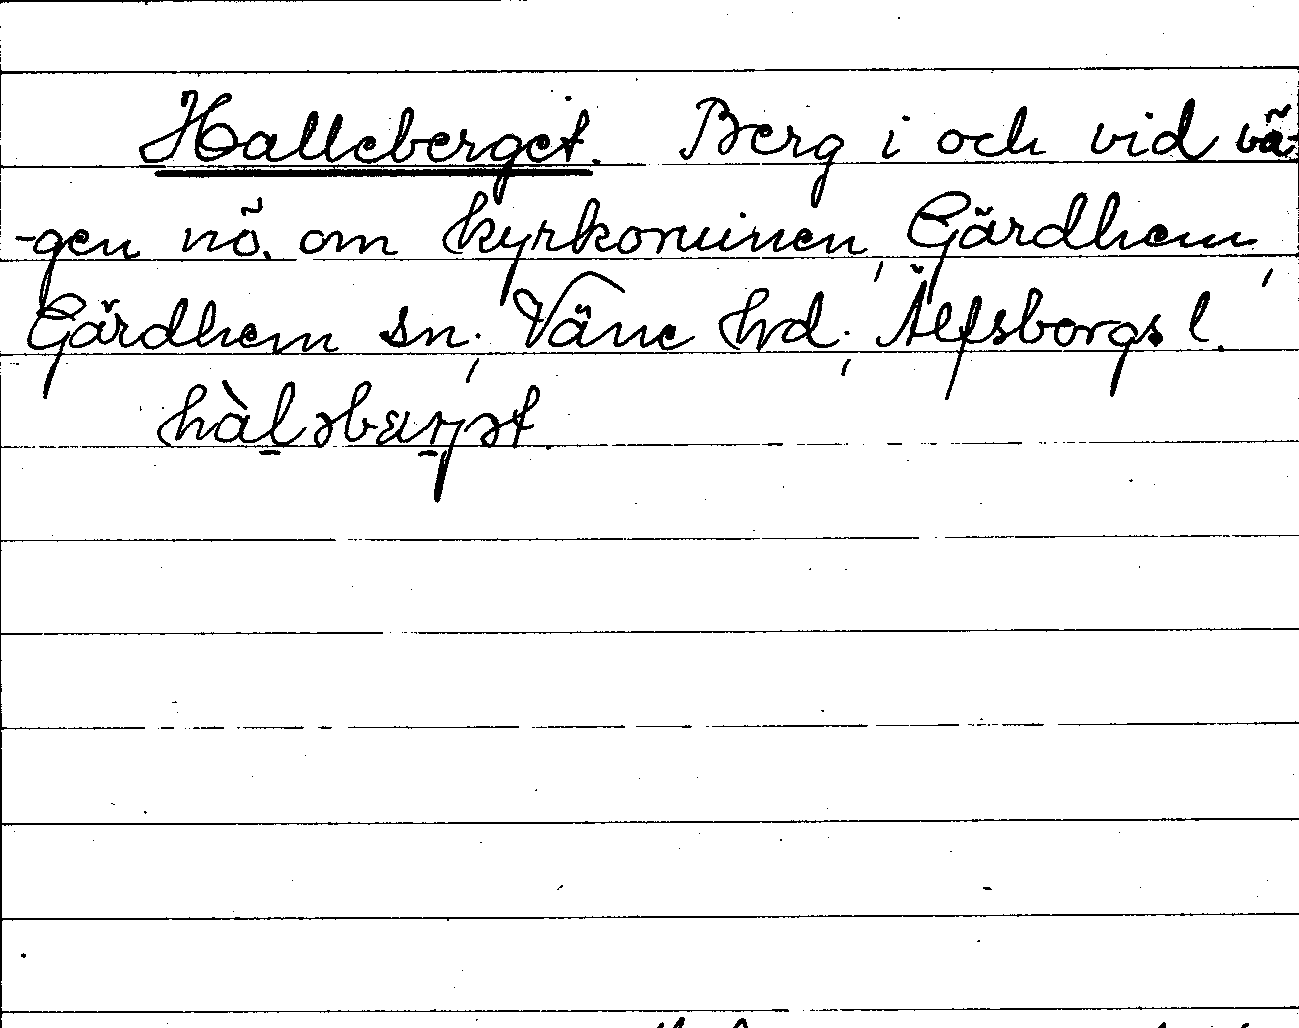 Halleberget. Berg i och vid vä-
-gen nö. om kyrkoruinen, Gärdhem,
Gärdhem sn; Väne hd; Älfsborgs l.